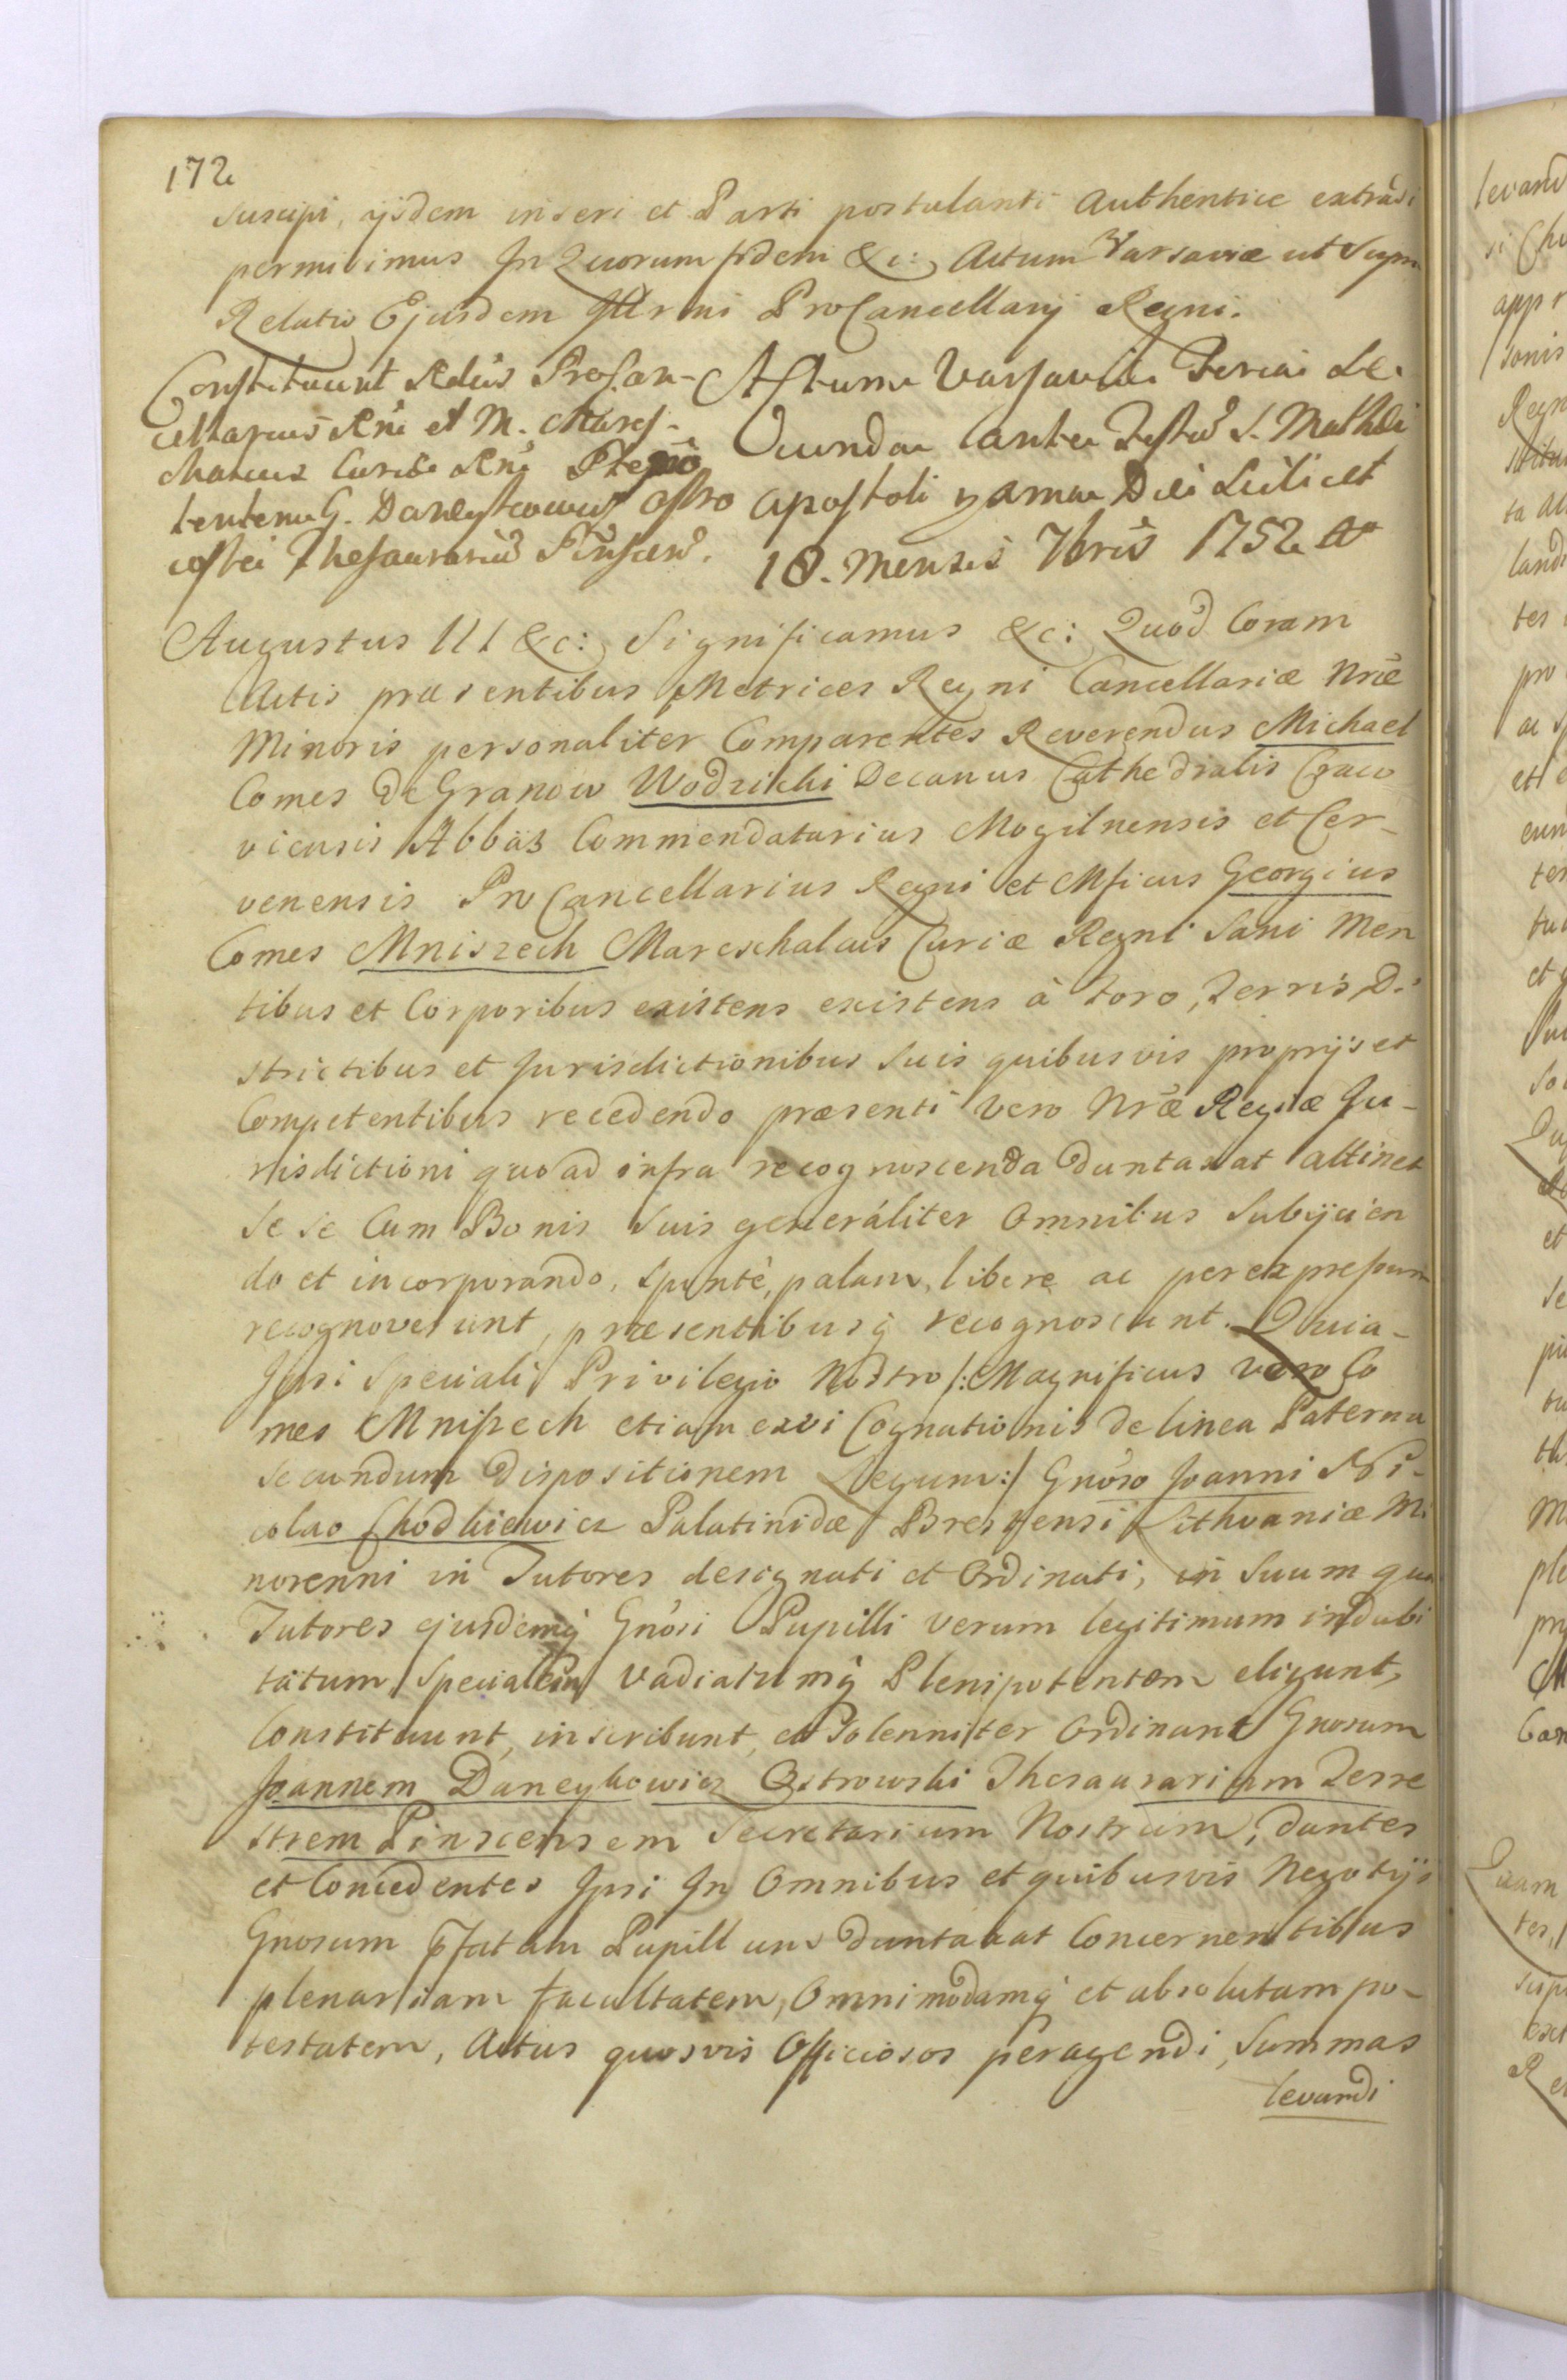 172
suscipi, ijsdem inseri et Parti postulanti Authentice extradi
permisimus In Quorum fidem &c: Actum Varsaviæ ut Supra
Relatio Ejusdem Illrmi ProCancellarij Regni.
Constituunt Rdus ProCan-
cellarius Rni et M. Mares-
chalcus Curiæ Rni Plenipo
tentem G. Daneykowicz Ostro
Thesaurariũ Pinscen.
Actum Varsaviæ Feria Se-
cunda ante Festũ S. Mathæi
Apostoli Die Scilicet
18. Mensis 7bris 1752
Augustus III &c: Significamus &c: Quod Coram
Actis præsentibus Metrices Regni Cancellariæ Nræ
Minoris personaliter Comparentes Reverendus Michael
Comes de Granow Wodzicki Decanus Cathedralis Craco
viensis Abbas Commendatarius Mogilnensis et Cer-
venensis ProCancellarius Regni et Mficus Georgius
Comes Mniszech Mareschalcus Curiæ Regni Sani Men
tibus et Corporibus existens existens à foro, Terris Di
strictibus et Jurisdictionibus Suis quibusvis proprijs et
Competentibus recedendo præsenti vero Nræ Regiæ Ju-
risdictioni quoad infra recognoscenda duntaxat attinet
Se se Cum Bonis Suis generáliter Omnibus Subijcien
do et incorporando, Spontè, palam, libere ac per expressum
recognoverunt, præsentibusq̃ recognoscunt. Quia-
Ipsi Speciali Privilegio Nostro /: Magnificus vero Co
mes Mniszech etiam ex vi Cognationis de linea Paterna
Secundum Dispositionem Legum :/ Gnoso Joanni Ni-
colao Chodkiewicz Palatinidæ Brestensi Lithvaniæ Mi
norenni in Tutores designati et Ordinati, in Suum qua
Tutores ejusdemq̃ Gnosi Pupilli verum legitimum indubi
tatum Specialem Vadiatumq̃ Plenipotentem eligunt,
Constituunt, inscribunt, et Solenniter Ordinant Gnosum
Joannem Daneykowicz Ostrowski Thesaurarium Terre
strem Pinscensem Secretarium Nostrum, dantes
et Concedentes Ipsi In Omnibus et quibusvis Negotijs
Gnosum pfatum Pupillum duntaxat Concernentibus
plenariam facultatem, Omnimodamq̃ et absolutam po-
testatem, Actus quosvis Officiosos peragendi, Summas
levandi